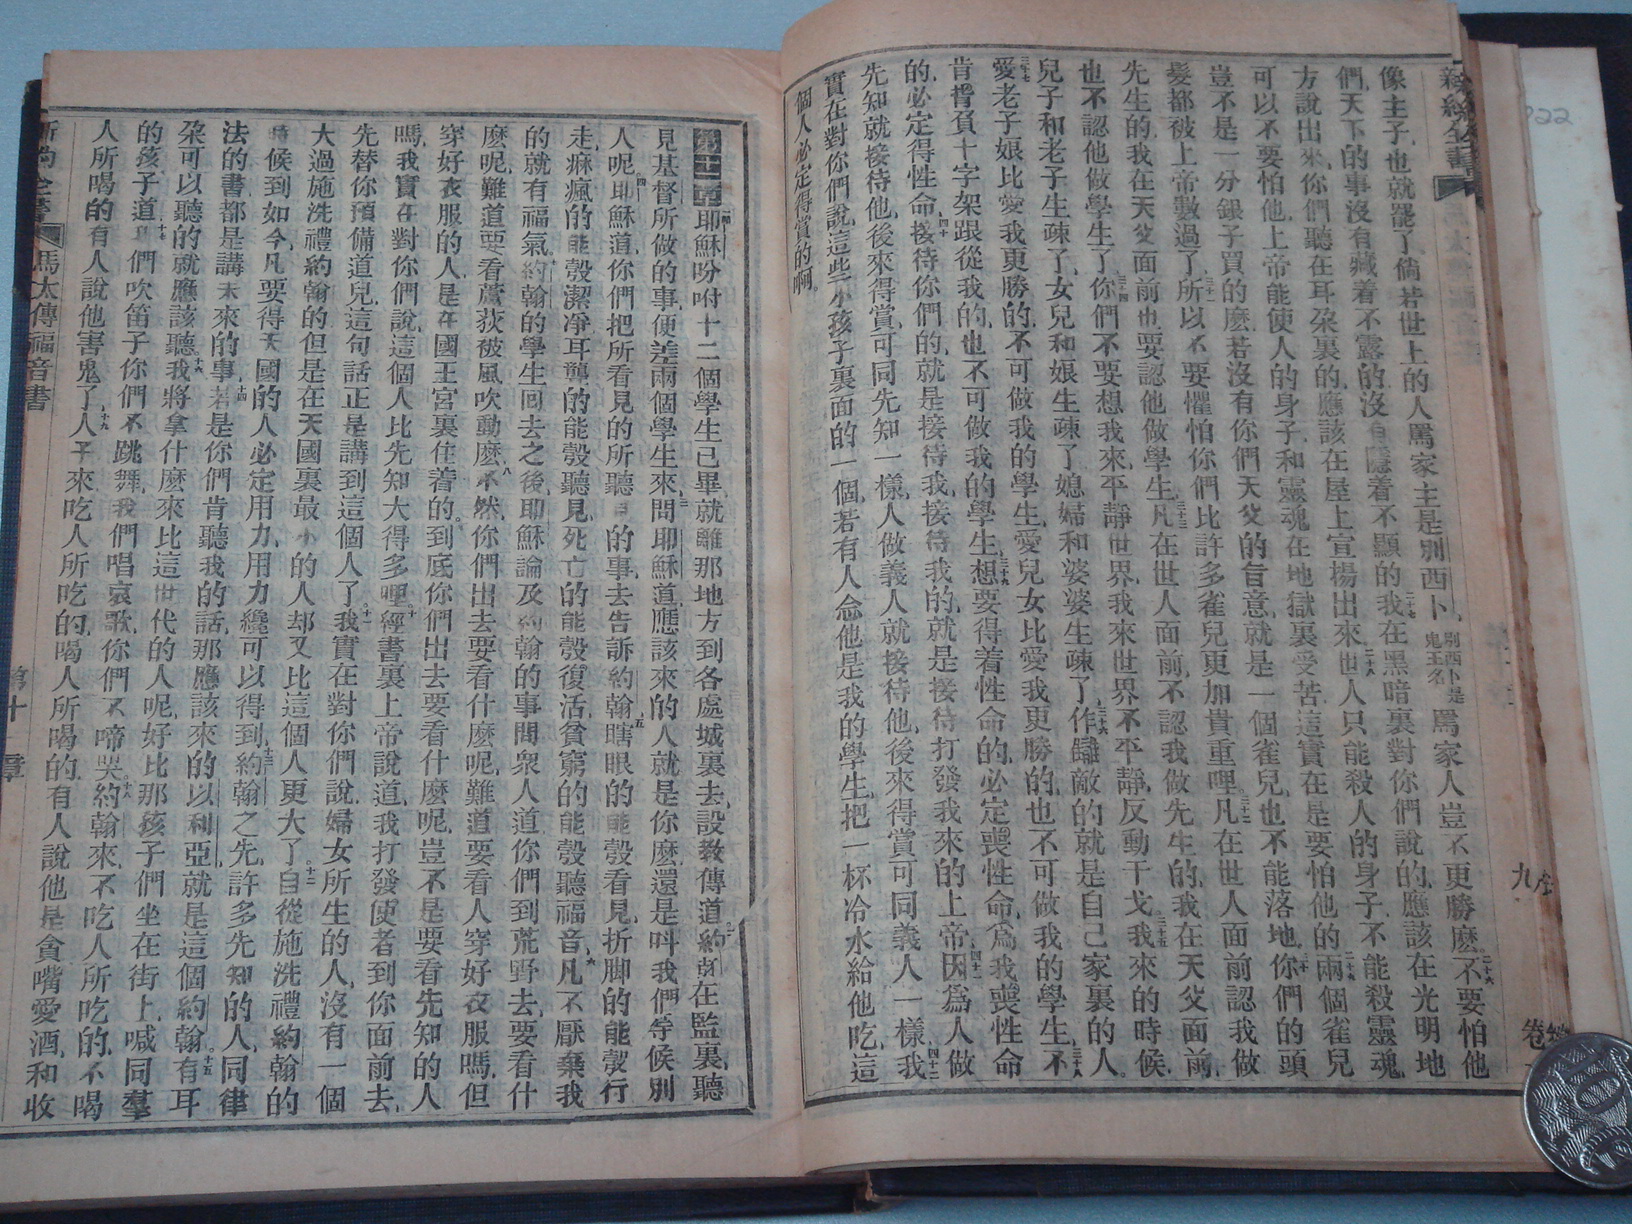 像主子,也就罷了,倘若世上的人罵家主是別西卜,別西卜是鬼王名罵家人豈不更勝麼。二十六不要怕他
們,天下的事沒有藏着不露的,沒有隱着不顯的,二十七我在黑暗裏對你們說的,應該在光明地
方說出來,你們聽在耳朶裏的,應該在屋上宣揚出來。二十八世人只能殺人的身子,不能殺靈魂,
可以不要怕他,上帝能使人的身子和靈魂在地獄裏受苦,這實在是要怕他的,二十九兩個雀兒
豈不是一分銀子買的麼,若沒有你們天父的旨意,就是一個雀兒,也不能落地,三十你們的頭
髮都被上帝數過了,三十一所以不要懼怕,你們比許多雀兒更加貴重哩。三十二凡在世人面前認我做
先生的,我在天父面前也要認他做學生,三十三凡在世人面前,不認我做先生的,我在天父面前,
也不認他做學生了,三十四你們不要想我來平靜世界,我來世界不平靜,反動干戈,三十五我來的時候,
兒子和老子生疎了,女兒和娘生疎了,媳婦和婆婆生疎了,三十六作讎敵的就是自己家裏的人。
三十七愛老子娘比愛我更勝的,不可做我的學生,愛兒女比愛我更勝的,也不可做我的學生,三十八不
肯背負十字架跟從我的,也不可做我的學生,三十九想要得着性命的,必定喪性命,爲我喪性命
的,必定得性命,四十接待你們的,就是接待我,接待我的,就是接待打發我來的上帝,四十一因爲人做
先知就接待他,後來得賞,可同先知一樣,人做義人就接待他,後來得賞可同義人一樣,四十二我
實在對你們說,這些小孩子裏面的一個,若有人念他是我的學生,把一杯冷水給他吃,這
個人必定得賞的啊。
第十一章
耶穌吩咐十二個學生已畢,就離那地方,到各處城裏去,設教傳道,二約翰在監裏,聽
見基督所做的事,便差兩個學生來,三問耶穌道,應該來的人就是你麼,還是呌我們等候別
人呢,四耶穌道,你們把所看見的所聽見的事,去告訴約翰,五瞎眼的能彀看見,折脚的能彀行
走,痲瘋的能彀潔凈,耳聾的能彀聽見,死亡的能彀復活,貧窮的能彀聽福音,六凡不厭棄我
的就有福氣。七約翰的學生回去之後,耶穌論及約翰的事,問衆人道,你們到荒野去,要看什
麼呢,難道要看蘆荻被風吹動麼,八不然,你們出去要看什麼呢,難道要看人穿好衣服嗎,但
穿好衣服的人,是在國王宮裏住着的。九到底你們出去要看什麼呢,豈不是要看先知的人
嗎,我實在對你們說,這個人比先知大得多哩,十經書裏上帝說道,我打發使者到你面前去,
先替你預備道兒,這句話正是講到這個人了。十一我實在對你們說,婦女所生的人,沒有一個
大過施洗禮約翰的,但是在天國裏最小的人,却又比這個人更大了。十二自從施洗禮約翰的
時候到如今,凡要得天國的人,必定用力,用力纔可以得到,十三約翰之先,許多先知的人,同律
法的書都是講未來的事,十四若是你們肯聽我的話,那應該來的以利亞就是這個約翰。十五有耳
朶可以聽的,就應該聽。十六我將拿什麼來比這世代的人呢,好比那孩子們坐在街上,喊同羣
的孩子道,十七我們吹笛子,你們不跳舞,我們唱哀歌,你們不啼哭,十八約翰來,不吃人所吃的,不喝
人所喝的,有人說他害鬼了,十九人子來,吃人所吃的,喝人所喝的,有人說他是貪嘴愛酒,和收
馬太傳福音書
第十一章